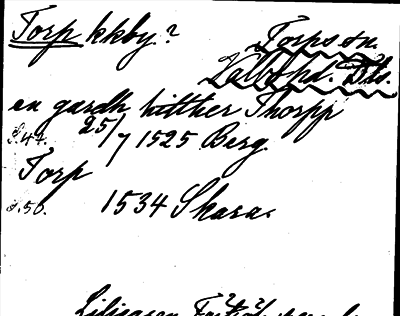 Torp kkby.? Torps sn.
Valbo hd. Dls.
en gardh hitther Thorpp
S.47. 25/7 1525 Berg.
Torp
S.50. 1534 Skara.